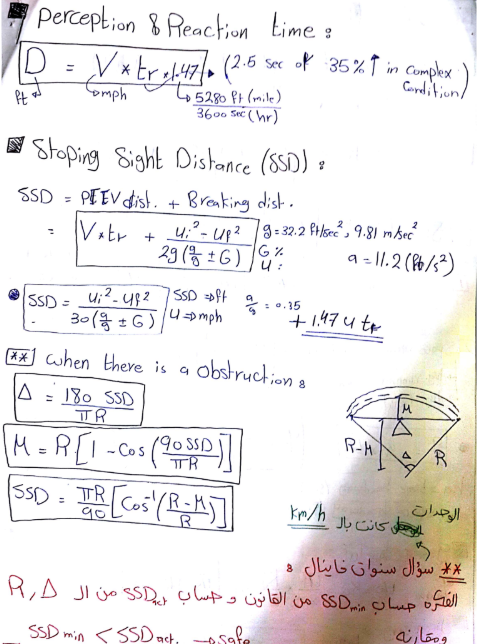 perception & Reaction time :
D = V * tr * 1.47 (2.5 sec of 35% ↑ in complex Condition)
ft mph 5280 ft (mile) / 3600 sec (hr)
Stoping Sight Distance (SSD) :
SSD = PIEV dist. + Breaking dist.
= V*tr + (ui² - uf²) / 2g(a/g ± G) g=32.2 ft/sec², 9.81 m/sec²
G %
u :
a = 11.2 (ft/s²)
SSD = (ui² - uf²) / 30(a/g ± G) SSD ⇒ ft a/g = 0.35
u ⇒ mph + 1.47 u tr
** when there is a obstruction :
Δ = 180 SSD / πR
M = R [1 - Cos (90 SSD / πR)]
SSD = πR / 90 [Cos⁻¹ (R - M / R)]
M
R-M Δ R
Δ
الوحدات
كانت بال km/h
** سؤال سنوات فاينال :
الفكرة حساب SSD min من القانون و حساب SSD act من ال R, Δ
ومقارنه
SSD min < SSD act. → safe